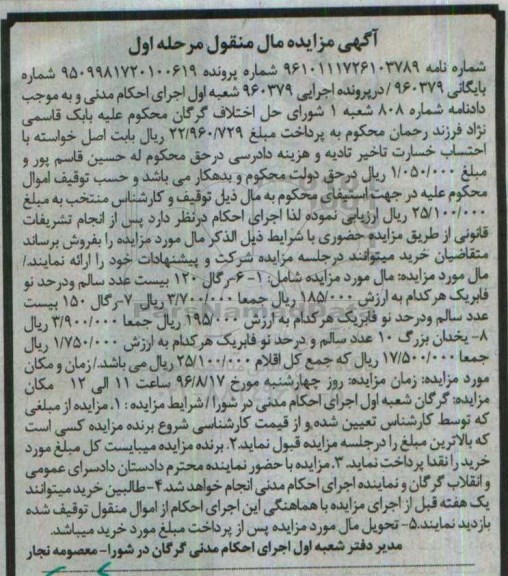 آگهی مزایده مال منقول مرحله اول
شماره نامه ۹۶۱۰۱۱۱۷۲۶۱۰۳۷۸۹ شماره پرونده ۹۵۰۹۹۸۱۷۲۰۱۰۰۶۱۹ شماره
بایگانی ۹۶۰۳۷۹ /درپرونده اجرایی ۹۶۰۳۷۹ شعبه اول اجرای احکام مدنی و به موجب
دادنامه شماره ۸۰۸ شعبه ۱ شورای حل اختلاف گرگان محکوم علیه بابک قاسمی
نژاد فرزند رحمان محکوم به پرداخت مبلغ ۲۲/۹۶۰/۷۲۹ ریال بابت اصل خواسته با
احتساب خسارت تاخیر تادیه و هزینه دادرسی درحق محکوم له حسین قاسم پور و
مبلغ ۱/۰۵۰/۰۰۰ ریال درحق دولت محکوم و بدهکار می باشد و حسب توقیف اموال
محکوم علیه در جهت استیفای محکوم به مال ذیل توقیف و کارشناس منتخب به مبلغ
۲۵/۱۰۰/۰۰۰ ریال ارزیابی نموده لذا اجرای احکام درنظر دارد پس از انجام تشریفات
قانونی از طریق مزایده حضوری با شرایط ذیل الذکر مال مورد مزایده را بفروش برساند
متقاضیان خرید میتوانند درجلسه مزایده شرکت و پیشنهادات خود را ارائه نمایند./
مال مورد مزایده: مال مورد مزایده شامل: ۱-۶-رگال ۱۲۰ بیست عدد سالم ودرحد نو
فابریک هرکدام به ارزش ۱۸۵/۰۰۰ ریال جمعا ۳/۷۰۰/۰۰۰ ریال ۷-رگال ۱۵۰ بیست
عدد سالم ودرحد نو فابریک هرکدام به ارزش ۱۹۵/۰۰۰ ریال جمعا ۳/۹۰۰/۰۰۰ ریال
۸- یخدان بزرگ ۱۰ عدد سالم و درحد نو فابریک هرکدام به ارزش ۱/۷۵۰/۰۰۰ ریال
جمعا ۱۷/۵۰۰/۰۰۰ ریال که جمع کل اقلام ۲۵/۱۰۰/۰۰۰ ریال می باشد./زمان و مکان
مورد مزایده: زمان مزایده: روز چهارشنبه مورخ ۹۶/۸/۱۷ ساعت ۱۱ الی ۱۲ مکان
مزایده: گرگان شعبه اول اجرای احکام مدنی در شورا/شرایط مزایده : ۱. مزایده از مبلغی
که توسط کارشناس تعیین شده و از قیمت کارشناسی شروع برنده مزایده کسی است
که بالاترین مبلغ را درجلسه مزایده قبول نماید.۲. برنده مزایده میبایست کل مبلغ مورد
خرید را نقدا پرداخت نماید. ۳. مزایده با حضور نماینده محترم دادستان دادسرای عمومی
و انقلاب گرگان و نماینده اجرای احکام مدنی انجام خواهد شد.۴-طالبین خرید میتوانند
یک هفته قبل از اجرای مزایده با هماهنگی این اجرای احکام از اموال منقول توقیف شده
بازدید نمایند.۵- تحویل مال مورد مزایده پس از پرداخت مبلغ مورد خرید میباشد.
مدیر دفتر شعبه اول اجرای احکام مدنی گرگان در شورا- معصومه نجار